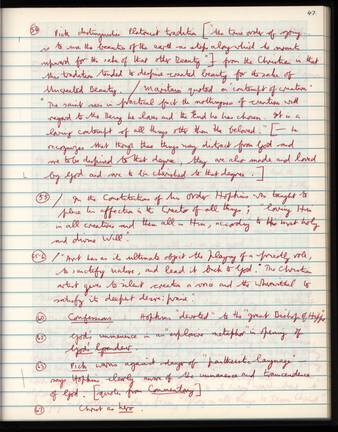 47.
(54) Pick distinguishes Platonist tradition ["the true order of going
is to use the beauties of the earth as steps along which to mounts
upward for the sake of that other Beauty"] from the Christian in that
this tradition tended to despise created beauty for the sake of
Uncreated Beauty. / Maritain quoted on 'contempt of creation'
"The saint sees in practical fact the nothingness of creatures with
regard to the Being he loves and the End he has chosen. It is a
loving contempt of all things other than the beloved." [—he
recognizes that though these things may distract from God and
are to be despised to that degree, they are also made and loved
by God and are to be cherished to that degree.]
(55) / In the Constitutions of his Order Hopkins was taught to
place his affection in the Creator of all things; "loving Him
in all creatures and them all in Him, according to His most holy
and divine Will".
"Art has as its ultimate object the playing of a priestly role,
to sanctify nature, and lead it back to God." The Christian
artist gives to silent creation a voice and the wherewithal to
satisfy its deepest desire: praise.
Confessions Hopkins 'devoted' to the "great Bishop of Hippo"
God's immanence in an "explosive metaphor" in opening of
God's Grandeur
Pick warns against danger of "pantheistic language"
says Hopkins clearly aware of the immanence and transcendence
of God. [quotes from Commentary]
Christ as hero.